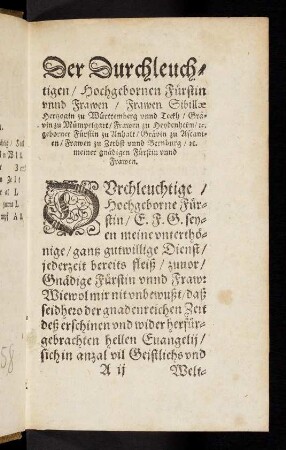 Der Durchleuch⸗
tigen / Hochgebornen Fürstin
vnnd Frawen / Frawen Sibillæ
Hertzogin zu Württemberg vnnd Teckh / Grä⸗
vin zu Mümpelgart / Frawen zu Heydenheim / ꝛc.
geborner Fürstin zu Anhalt / Grävin zu Ascani⸗
en / Frawen zu Zerbst vnnd Bernburg / ꝛc.
meiner gnädigen Fürstin vnnd
Frawen.
DVrchleuchtige /
Hochgeborne Für⸗
stin / E. F. G. sey⸗
en meine vnterthö⸗
nige / gantz gutwillige Dienst /
jederzeit bereits fleiß / zuuor /
Gnädige Fürstin vnnd Fraw:
Wiewol mir nit vnbewußt / daß
seidhero der gnadenreichen Zeit
deß erschinen vnd wider herfür⸗
gebrachten hellen Euangelij /
sich in anzal vil Geistliches vnd
A ij Welt⸗
58